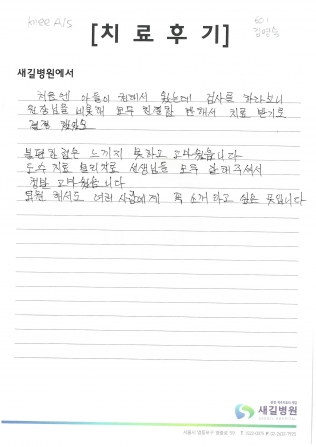 knee A/S
601
김명숙
[치료후기]
새길병원에서
처음엔 아들이 권해서 왔는데 검사를 하다보니
원장님을 비롯해 모두 친절함 반해서 치료 받기로
결정 했었음
불편함 같은 느끼지 못하고 고마웠읍니다
도수 치료 물리치료 선생님들 모두 잘해주셔서
정말 고마웠습니다
퇴원 해서도 여러 사람에게 꼭 소개하고 싶은 곳입니다
새길병원